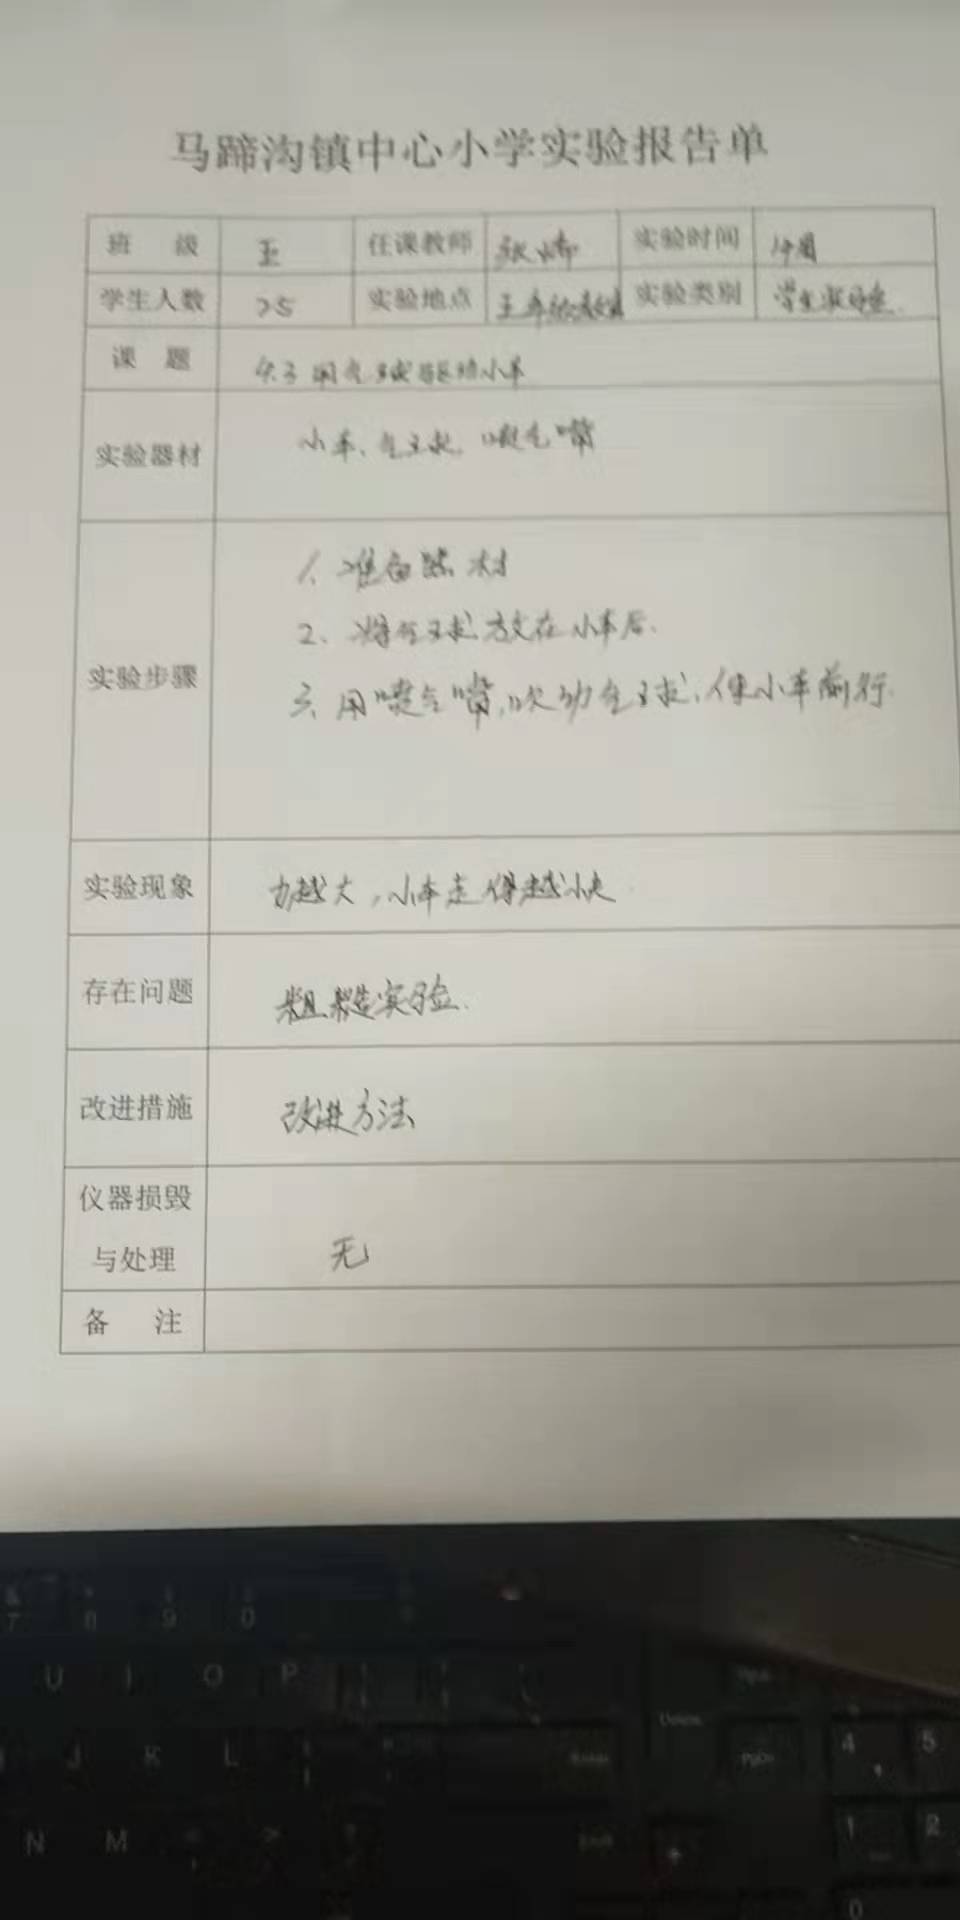 马蹄沟镇中心小学实验报告单
班 级 五 任课教师 张 实验时间
学生人数 25 实验地点 实验类别 学生实验
课 题 4.3 用气球驱动小车
实验器材 小车、气球、喷气嘴
实验步骤
1、准备器材
2、将气球放在小车后.
3、用喷气嘴,吹动气球,使小车前行.
实验现象 力越大,小车走得越快.
存在问题 粗糙实验.
改进措施 改进方法
仪器损毁
与处理 无
备 注
7 8 9 0
U I O P
Delete
J K L
4 5
N M < >
1 2
0